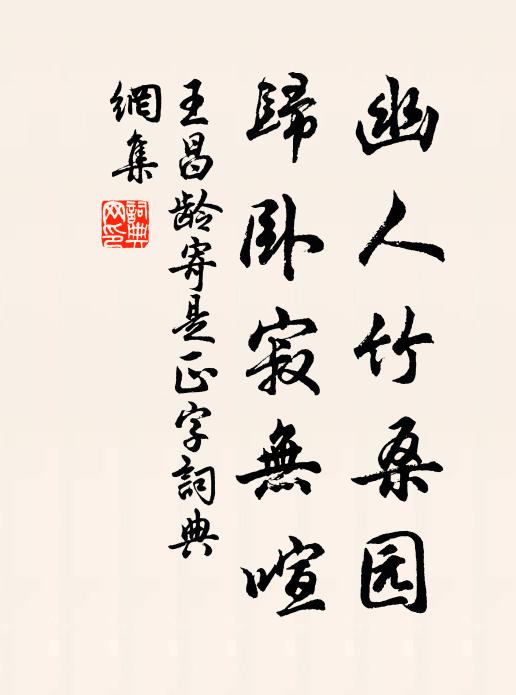 幽人竹桑园
歸卧寂無喧
王昌龄寄是正字詞典
網集
詞典網印